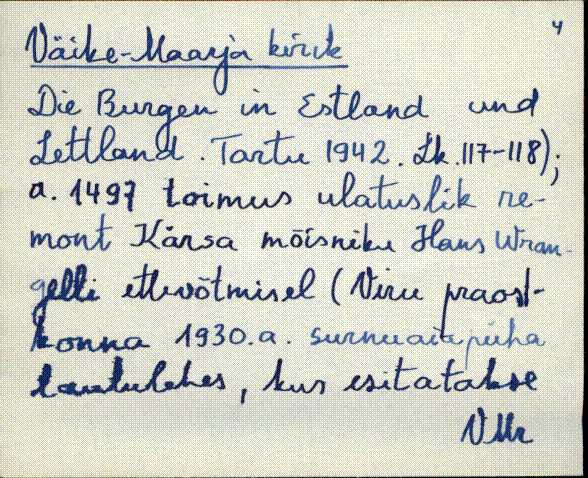 4
Väike-Maarja kirik
Die Burgen in Estland und
Lettland. Tartu 1942. Lk. 117-118);
a. 1497 toimus ulatuslik re-
mont Kärsa mõisniku Hans Wran-
gelli ettevõtmisel (Viru praost-
konna 1930.a. surnuaiapüha
laululehes, kus esitatakse
VMr